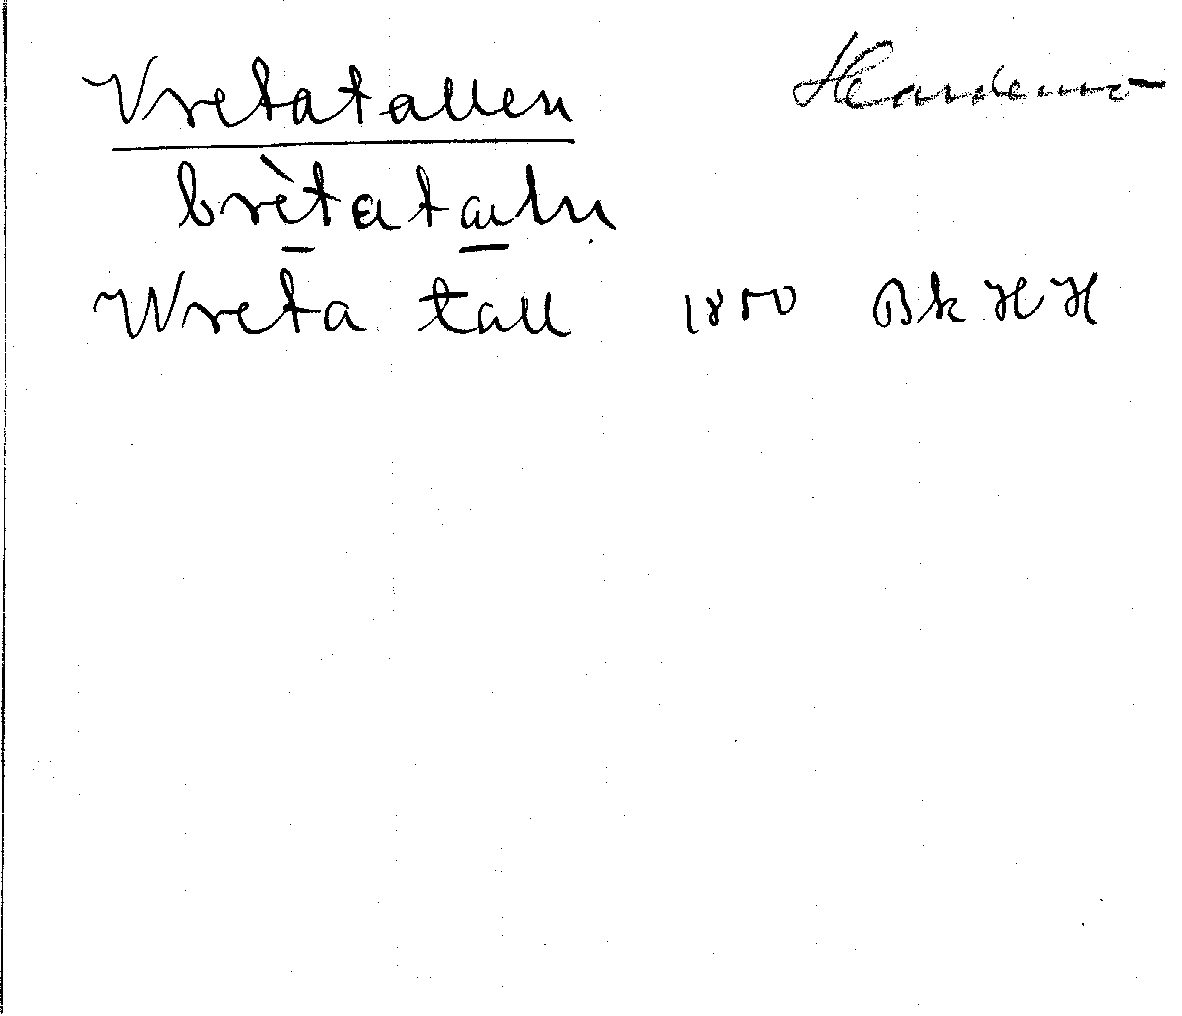 Vretatallen Hardemo
brètataln
Wreta tall 1850 Bk HH